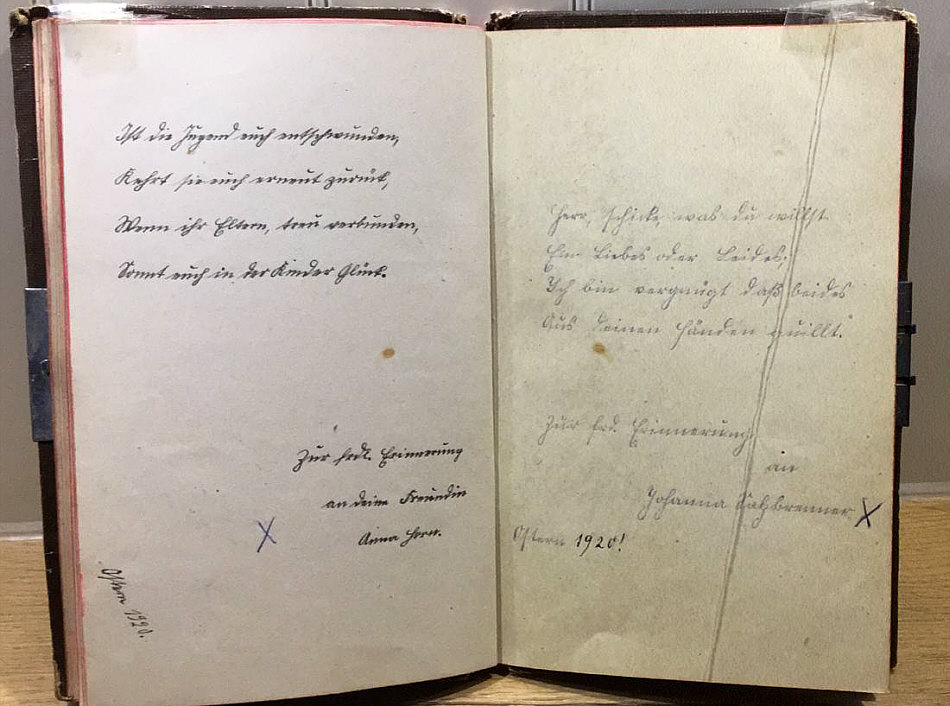 Ist die Jugend euch entschwunden,
Kehrt sie euch erneut zurück,
Wenn ihr Eltern, treu verbunden,
Sonnt euch in der Kinder Glück.
Zur frdl. Erinnerung
an deine Freundin
Anna Horn.
Ostern 1920.
Herr, schicke, was du willst
Ein Liebes oder Leides;
Ich bin vergnügt daß beides
Aus deinen Händen quillt.
Zur frd. Erinnerung
an
Johanna Salzbrenner
Ostern 1920!